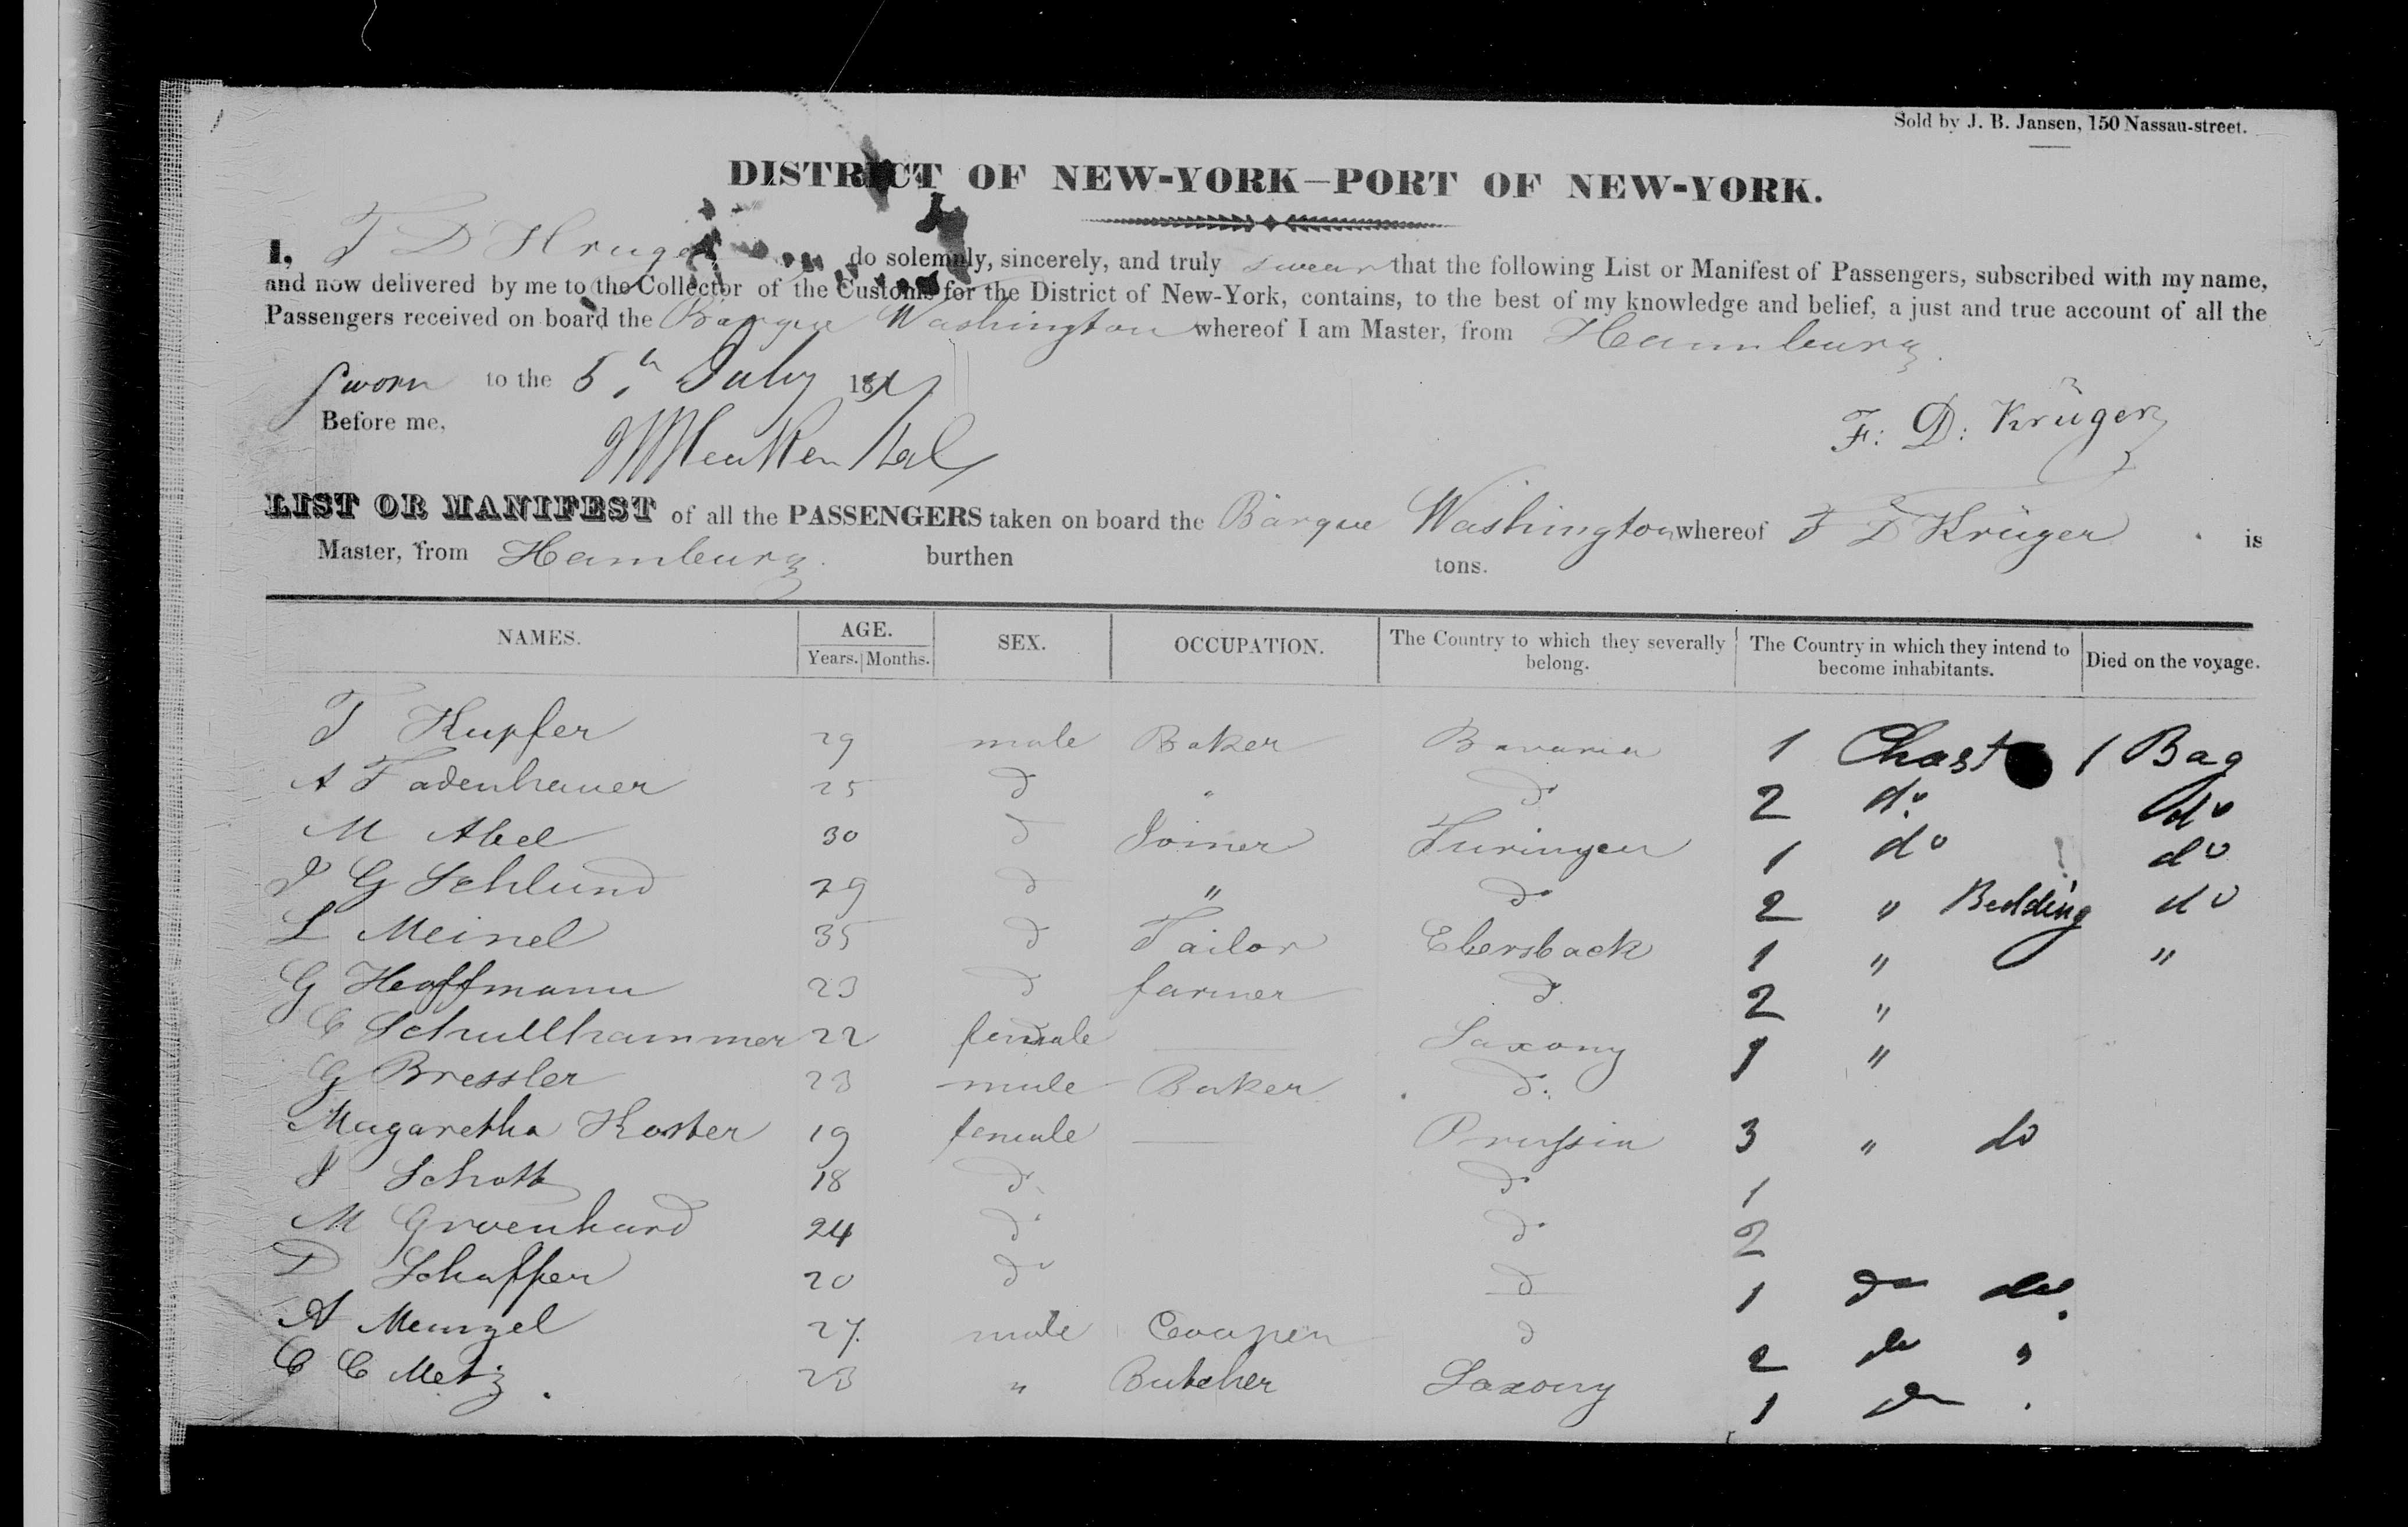 Sold by J. B. Jansen, 150 Nassau-street.
DISTRICT OF NEW-YORK—PORT OF NEW-YORK.
I, F D Kruger do solemnly, sincerely, and truly swear that the following List or Manifest of Passengers, subscribed with my name,
and now delivered by me to the Collector of the Customs for the District of New-York, contains, to the best of my knowledge and belief, a just and true account of all the
Passengers received on board the Barque Washington whereof I am Master, from Hamburg.
Sworn to the 5th July 18
Before me,
F: D: Krüger
LIST OR MANIFEST of all the PASSENGERS taken on board the Barque Washington whereof F D Krüger is
Master, from Hamburg. burthen tons.
NAMES. AGE. Years. Months. SEX. OCCUPATION. The Country to which they severally belong. The Country in which they intend to become inhabitants. Died on the voyage.
Kupfer 29 male Baker Bavaria 1 Chast 1 Bag
A Fadenhauer 25 d " do 2 do do
M Abel 30 d Joiner Turingen 1 do do
J G Schlund 29 d " do 2 " Bedding do
L Meinel 35 d Tailor Ebersback 1 " "
G Hoffmann 23 d farmer d. 2 "
C Schullhammer 22 female — Saxony 1 "
G Bressler 23 male Baker do.
Magaretha Koster 19 female — Prussia 3 " do
Schott 18 do do 1
M Groenhard 24 do do 2
D Schaffer 20 do d 1 do do
A Menzel 27. male Cooper d 2 do "
C C Metz. 23 " Butcher Saxony 1 do .